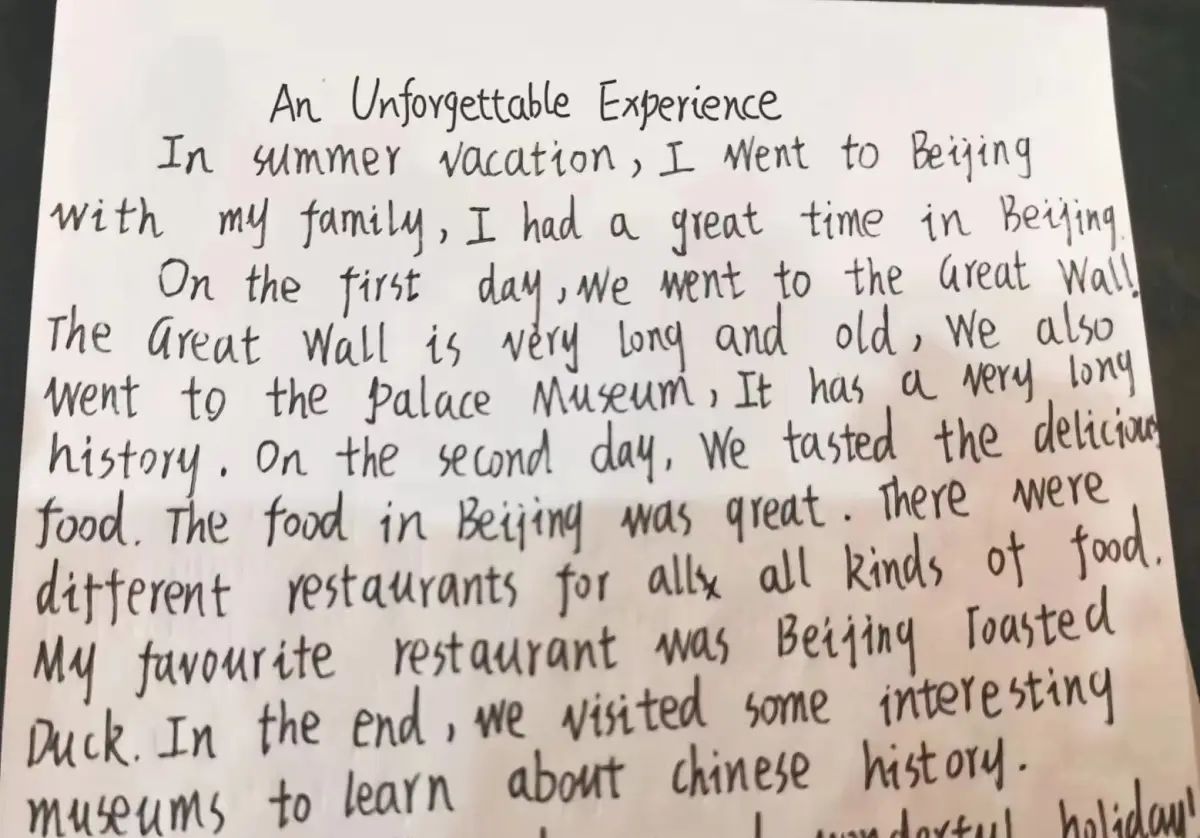 An Unforgettable Experience
In summer vacation, I went to Beijing
with my family, I had a great time in Beijing.
On the first day, we went to the Great Wall!
The Great Wall is very long and old, We also
went to the palace Museum, It has a very long
history. On the second day, We tasted the delicious
food. The food in Beijing was great. There were
different restaurants for all all kinds of food.
My favourite restaurant was Beijing Toasted
Duck. In the end, we visited some interesting
museums to learn about chinese history.
wonderful holiday!